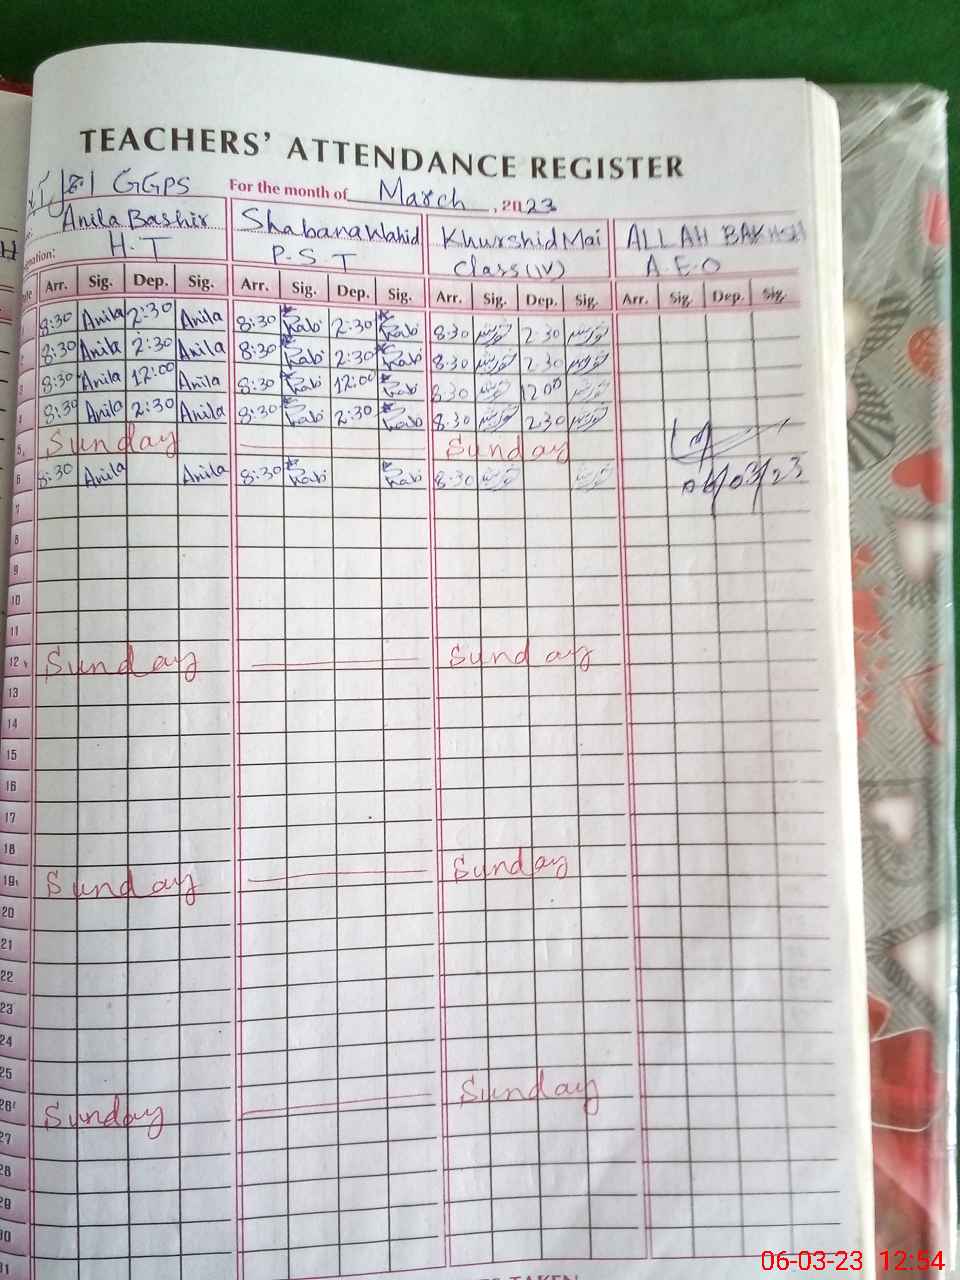 TEACHERS' ATTENDANCE REGISTER
GGPS For the month of March, 2023
Anila Bashir Shabana Wahid Khurshid Mai ALLAH BAKHSH
H.T P.S.T Class(IV) A.E.O
Arr. Sig. Dep. Sig. Arr. Sig. Dep. Sig. Arr. Sig. Dep. Sig. Arr. Sig. Dep. Sig.
8:30 Anila 2:30 Anila 8:30 2:30 8:30 2:30
8:30 Anila 2:30 Anila 8:30 2:30 8:30 2:30
3 8:30 Anila 12:00 Anila 8:30 12:00 8:30 12:00
4 8:30 Anila 2:30 Anila 8:30 2:30 8:30 2:30
5 Sunday Sunday
6 8:30 Anila Anila 8:30 8:30 06/03/23
7
8
9
10
11
12 Sunday Sunday
13
14
15
16
17
18
19 Sunday Sunday
20
21
22
23
24
25
26 Sunday Sunday
27
28
29
30
31
06-03-23 12:54